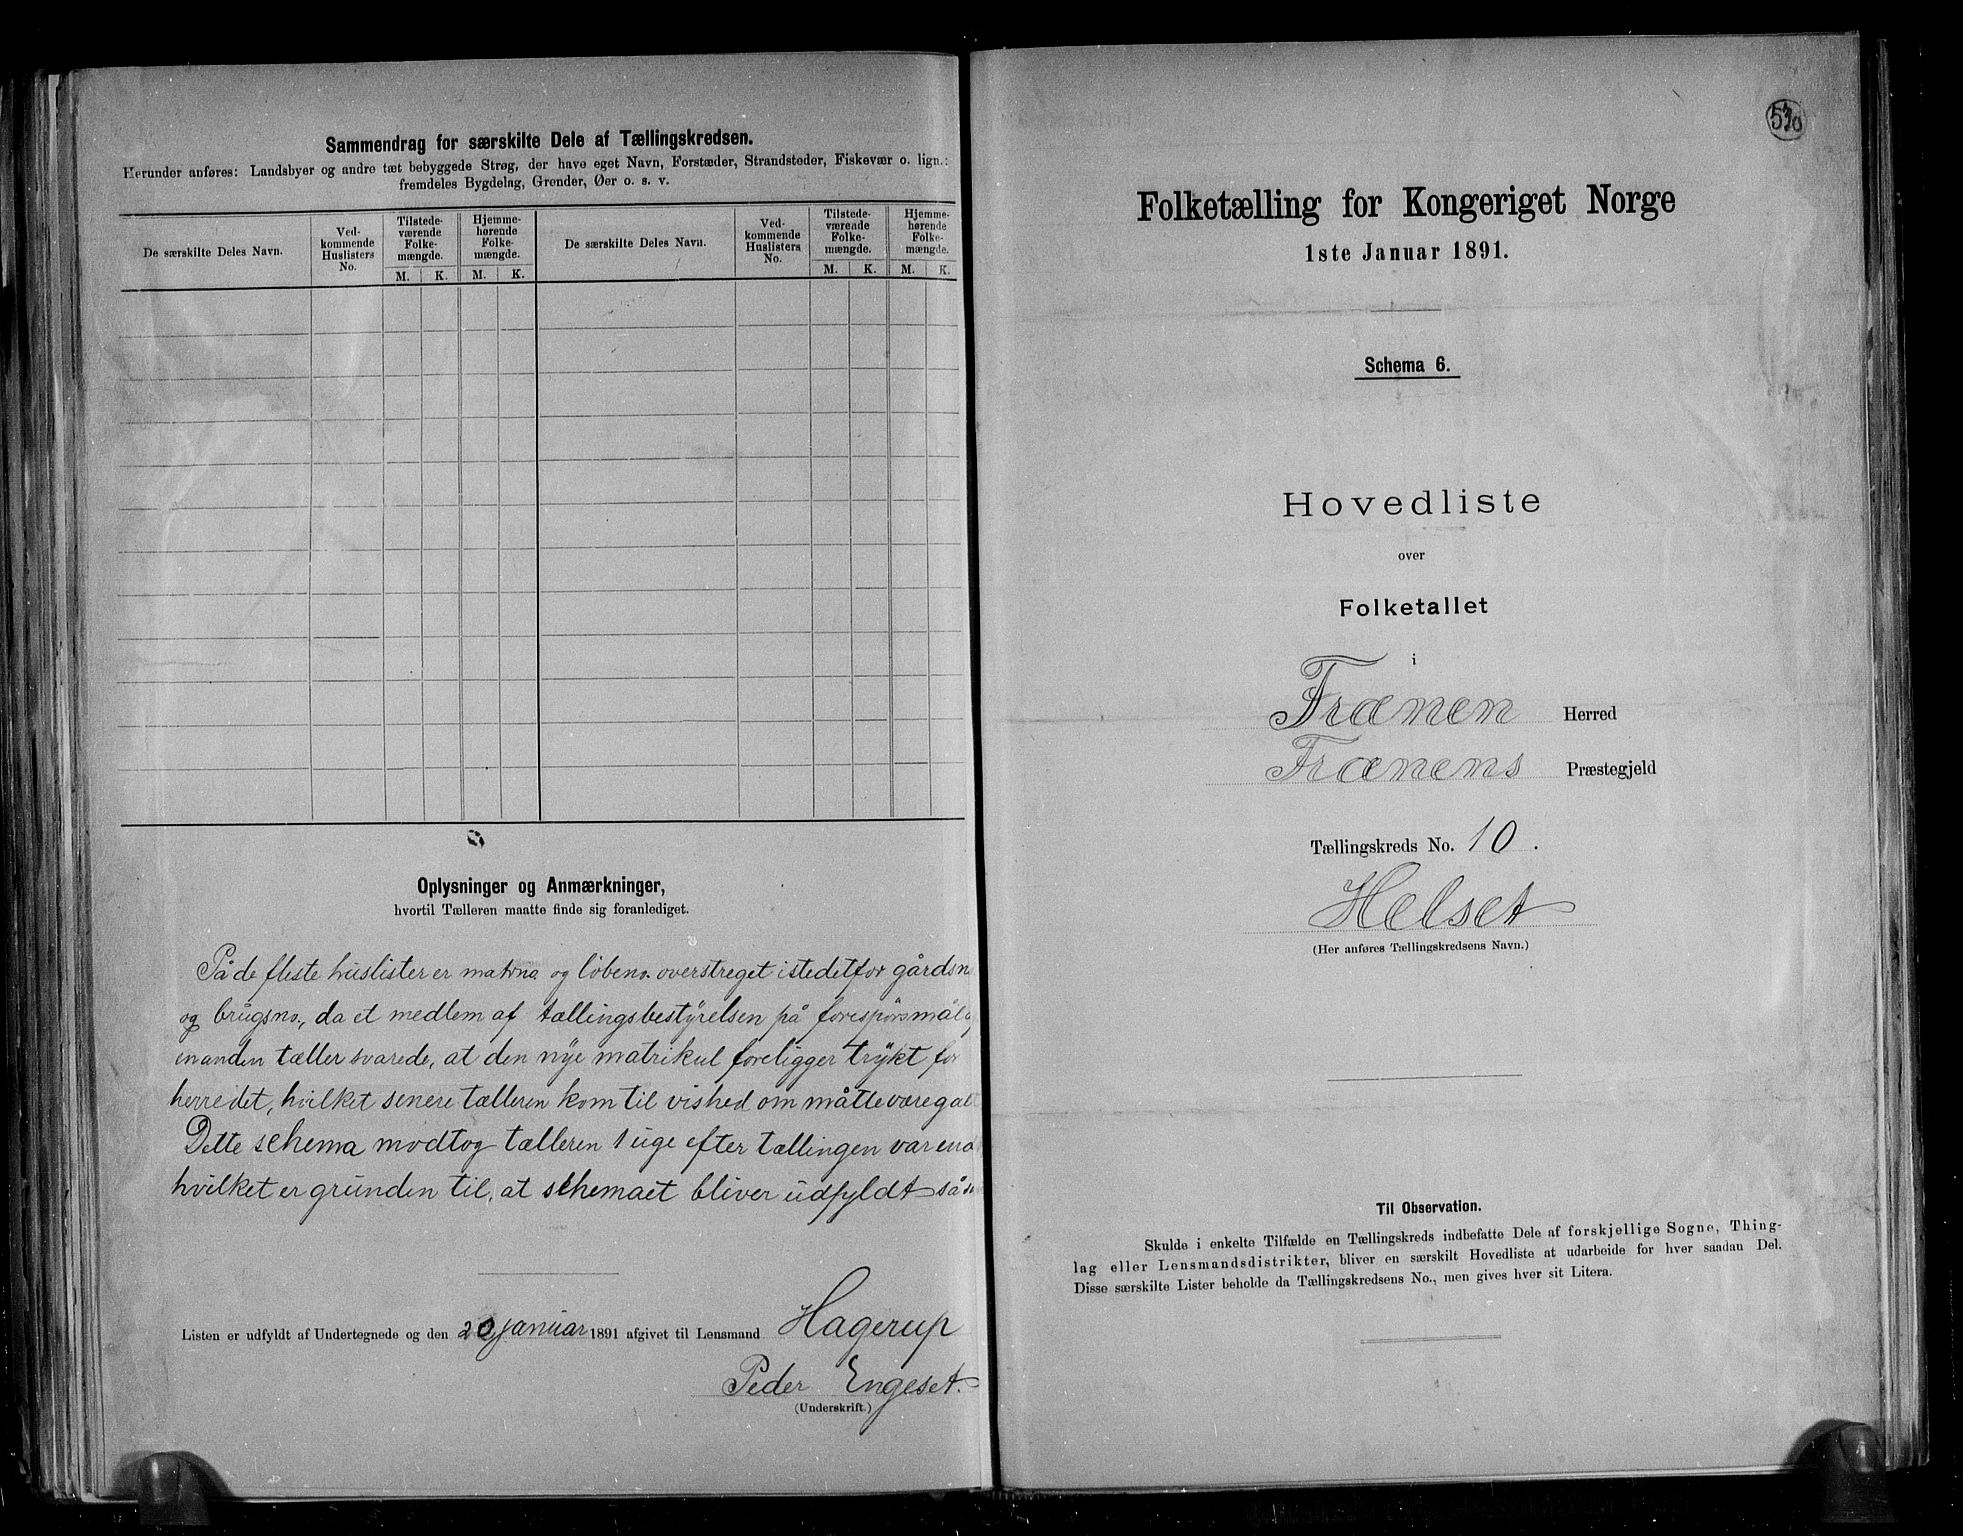 Sammendrag for særskilte Dele af Tællingskredsen.
Herunder anføres: Landsbyer og andre tæt bebyggede Strøg, der have eget Navn, Forstæder, Strandsteder, Fiskevær o. lign.:
fremdeles Bygdelag, Grender, Øer o. s. v.
De særskilte Deles Navn.
Ved-
kommende
Huslisters
No.
Tilstede-
værende
Folke-
mængde.
Hjemme-
hørende
Folke-
mængde.
De særskilte Deles Navn.
Ved-
kommende
Huslisters
No.
Tilstede-
værende
Folke-
mængde.
Hjemme-
hørende
Folke-
mængde.
M. K. M. K. M. K. M. K.
Oplysninger og Anmærkninger,
hvortil Tælleren maatte finde sig foranlediget.
På de fleste huslister er matrno og löbeno. overstreget istedetfor gårdsn
og brugsno., da et medlem af tællingsbestyrelsen på forespörsmål
en anden tæller svarede, at den nye matrikul foreligger trykt for
herredet, hvilket senere tælleren kom til vished om måtte være gal
Dette schema modtog tælleren 1 uge efter tællingen var end
hvilket er grunden til, at schemaet bliver udfyldt så
Listen er udfyldt af Undertegnede og den 20 januar 1891 afgivet til Lensmand Hagerup
Peder Engeset.
(Underskrift.)
Folketælling for Kongeriget Norge
1ste Januar 1891.
Schema 6.
Hovedliste
over
Folketallet
i
Frænen Herred
Frænens Præstegjeld
Tællingskreds No. 10.
Helset
(Her anføres Tællingskredsens Navn.)
Til Observation.
Skulde i enkelte Tilfælde en Tællingskreds indbefatte Dele af forskjellige Sogne, Thing-
lag eller Lensmandsdistrikter, bliver en særskilt Hovedliste at udarbeide for hver saadan Del.
Disse særskilte Lister beholde da Tællingskredsens No., men gives hver sit Litera.